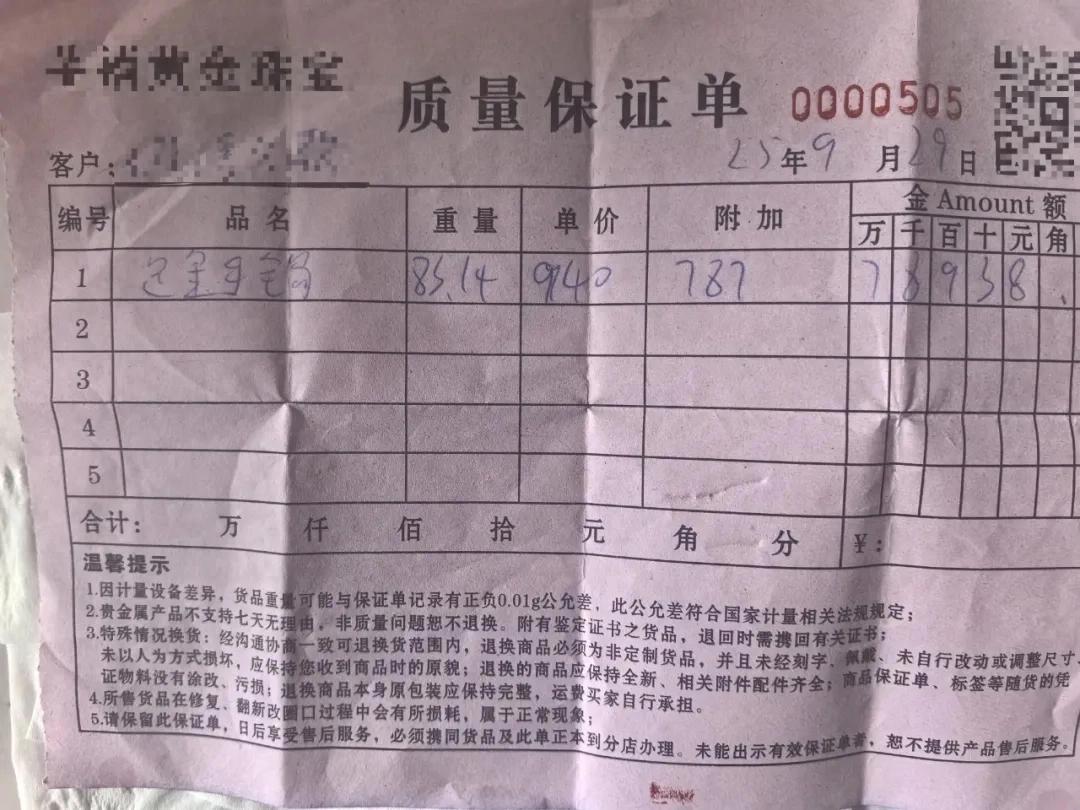 黄金珠宝
质量保证单 0000505
客户：
25年9月29日
编号 品名 重量 单价 附加 金Amount额
万 千 百 十 元 角
1 足金手镯 83.14 940 787 7 8 9 3 8 .
2
3
4
5
合计： 万 仟 佰 拾 元 角 分 ¥：
温馨提示
1.因计量设备差异，货品重量可能与保证单记录有正负0.01g公允差，此公允差符合国家计量相关法规规定；
2.贵金属产品不支持七天无理由，非质量问题恕不退换。附有鉴定证书之货品，退回时需携回有关证书；
3.特殊情况换货：经沟通协商一致可退换货范围内，退换商品必须为非定制货品，并且未经刻字、佩戴、未自行改动或调整尺寸、
未以人为方式损坏，应保持您收到商品时的原貌；退换的商品应保持全新、相关附件配件齐全；商品保证单、标签等随货的凭
证物料没有涂改、污损；退换商品本身原包装应保持完整，运费买家自行承担。
4.所售货品在修复、翻新改圈口过程中会有所损耗，属于正常现象；
5.请保留此保证单，日后享受售后服务，必须携同货品及此单正本到分店办理。未能出示有效保证单者，恕不提供产品售后服务。